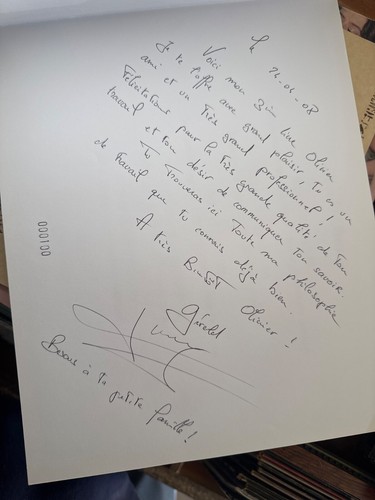 Le 26.04.08
Voici mon 3ème livre Olivier
Je te l'offre avec grand plaisir, Tu es un
ami et un Très grand professionnel !
Félicitations pour la Très grande qualité de Ton
travail et ton désir de communiquer Ton savoir.
Tu Trouveras ici Toute ma philosophie
de Travail que Tu connais déjà bien.
A Très Bientôt Olivier !
Gérald
Bisous à Ta petite famille !
000100